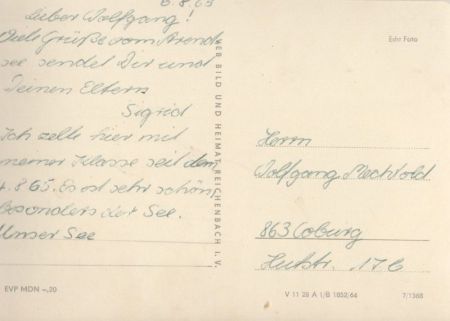 6.8.65
Lieber Wolfgang!
Viele Grüße vom Arend-
see sendet Dir und
Deinen Eltern
Sigrid
Ich zelte hier mit
meiner Klasse seit dem
4.8.65. Es ist sehr schön,
besonders der See.
Unser See
EVP MDN –,20
BILD UND HEIMAT REICHENBACH I. V.
Echt Foto
Herrn
Wolfgang Mechtold
863 Coburg
Hutstr. 17 b
V 11 28 A 1/B 1852/64 7/1368